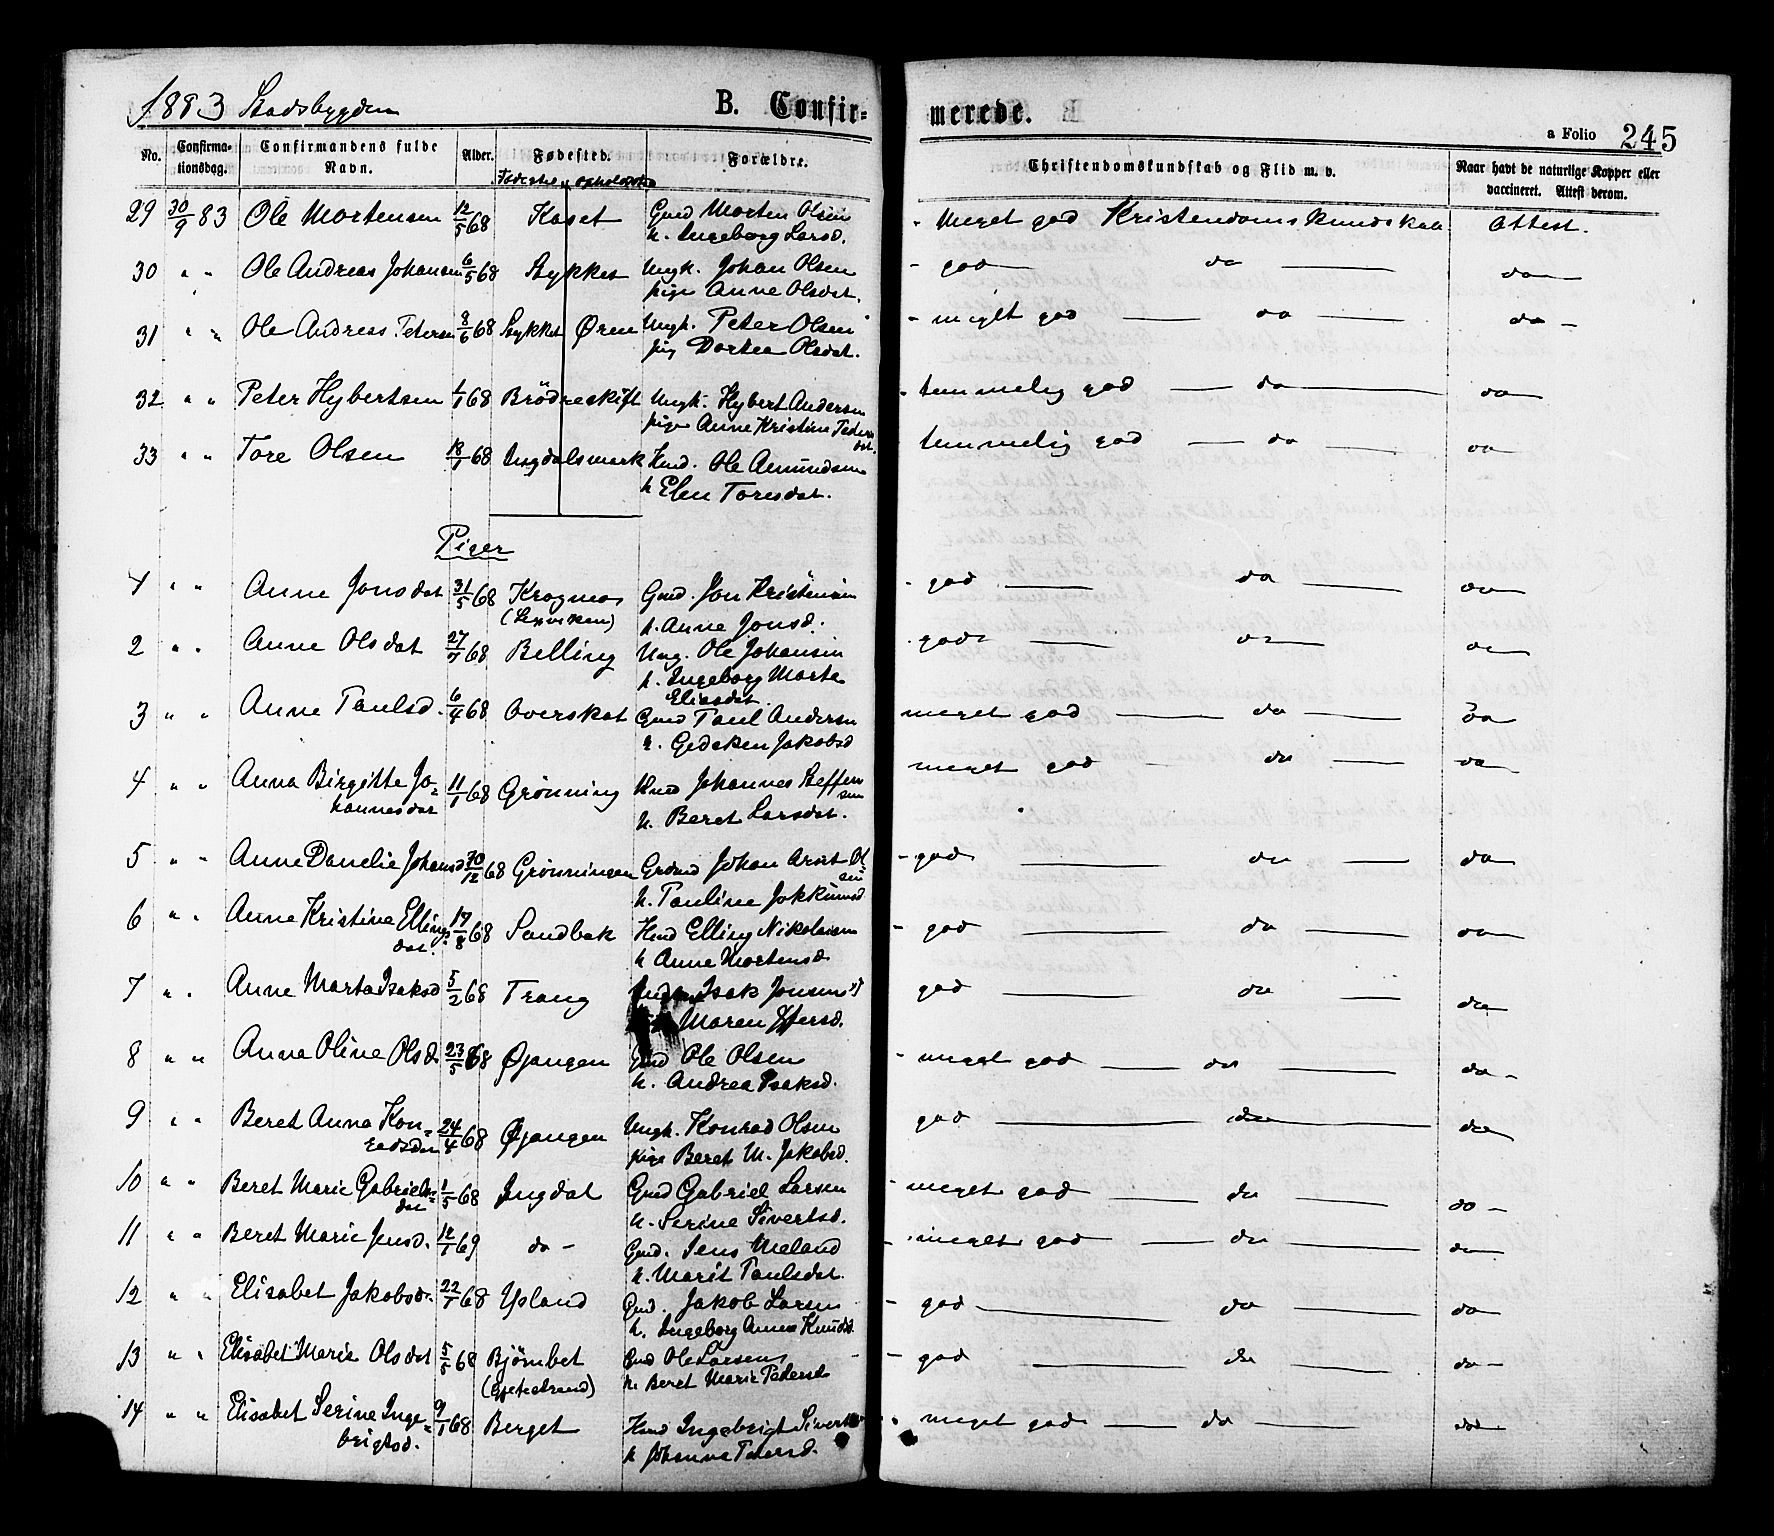 1883 Stadsbygden B. Confir-
merede.
a Folio 245
No. Confirma-tionsdag. Confirmandens fulde Navn. Alder. Fødested. Forældre. Christendomskundskab og Flid m. v. Naar havt de naturlige Kopper eller vaccineret. Attest derom.
29 30/9 83 Ole Mortensen 12/5 68 Kaset Gmd Morten Olsen - meget god Kristendomskundskab Attest.
h. Ingeborg Larsd.
30 " " Ole Andreas Johansen 6/5 68 Stykket Ungk. Johan Olsen - god do do
pige Anne Olsdat.
31 " " Ole Andreas Petersen 8/6 68 Stykket Øren Ungk. Peter Olsen - meget god do do -
pig Dortea Olsdat.
32 " " Peter Hybertsen 1/1 68 Brödreskift Ungk. Hybert Andersen - temmelig god do do
pige Anne Kristine Peders
dat.
33 " " Tore Olsen 18/1 68 Ingdalsmark Hmd. Ole Amundsen temmelig god do do
h Elen Toresdat.
Piger
1 " " Anne Jonsdat 31/5 68 Kragmo Gmd. Jon Kristensen - god do do
(Lexviken) h. Anne Jonsd.
2 " " Anne Olsdat 27/7 68 Belling Ung. Ole Johansen god do do
p. Ingeborg Marta
Eliasdat.
3 " " Anne Paulsd. 6/4 68 Overskot Gmd Paul Andersen meget god do do
h. Gedsken Jakobsd
4 " " Anna Birgitte Jo- 11/1 68 Grönning Hmd Johannes Steffen meget god do do
hannesdat sen
h. Beret Larsdat.
5 " " Anne Danelie Johansd 30/12 68 Grönningen Grdmd Johan Arnt Ol - god do do
sen
h. Pauline Jokkumsd
6 " " Anne Kristine Ellings 17/8 68 Sandbak Hmd Elling Nikolaisen - god do do
dat. h Anne Mortensd
7 " " Anne Marta Isaksd 5/2 68 Trang Isak Jonsen god do do
Maren
8 " " Anne Oline Olsd 23/5 68 Øjangen Gmd Ole Olsen - meget god do do -
h. Andrea Isaksd.
9 " " Beret Anna Kon- 24/4 68 Øjangen Ungk. Konrad Olsen god do do
radsdat pige Beret M. Jakobsd.
10 " " Beret Marie Gabriels- 1/5 68 Ingdal Gmd Gabriel Larsen - meget god do do -
dat h. Serine Sivertsd.
11 " " Beret Marie Jensd. 12/1 69 do - Gmd. Jens Meland meget god do do
h. Marit Paulsdat.
12 " " Elisabet Jakobsd. 22/1 68 Ysland Gmd. Jakob Larsen - god do do
h. Ingeborg Anna Knudsd.
13 " " Elisabet Marie Olsdat 5/5 68 Björnbet Gmd Ole Larsen - god do do -
h. Beret Marie Pedersd
14 " " Elisabet Serine Inge- 9/1 68 Berget Hmd Ingebrigt Sivertsen - meget god do do
brigtsd. h Johanna Petersd.